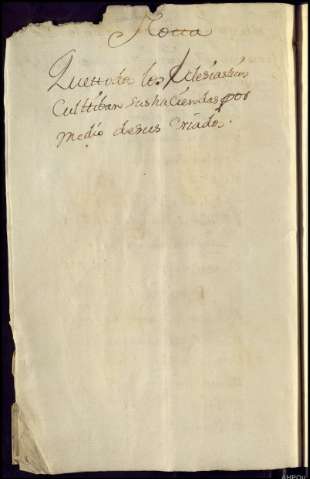 Notta
Que ttodos los Eclesiasticos
Culttiban sus haciendas por
medio de sus Criados.
AHPOu